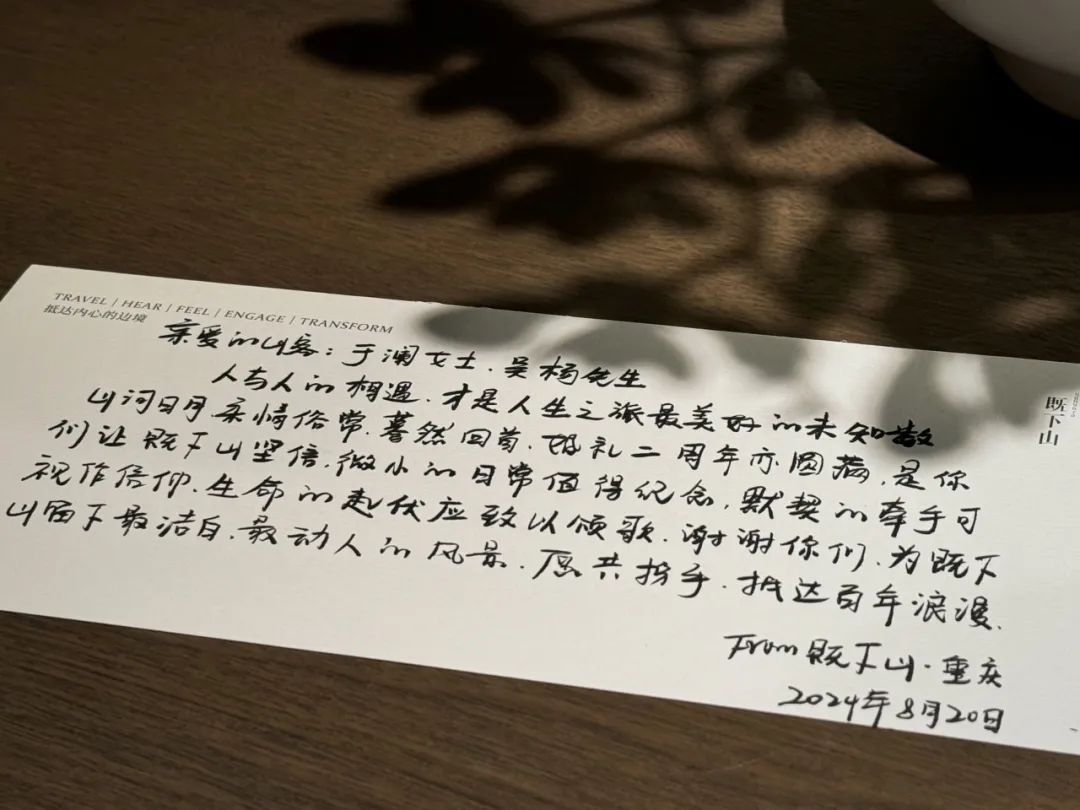 TRAVEL / HEAR / FEEL / ENGAGE / TRANSFORM
抵达内心的边境
既下山
亲爱的山客：于澜女士、吴杨先生
人与人的相遇，才是人生之旅最美好的未知数
山河日月，柔情俗常，蓦然回首，婚礼二周年亦圆满，是你
们让既下山坚信，微小的日常值得纪念，默契的牵手可
视作信仰，生命的起伏应致以颂歌，谢谢你们，为既下
山留下最洁白，最动人的风景，愿共携手，抵达百年浪漫。
From 既下山·重庆
2024年8月20日